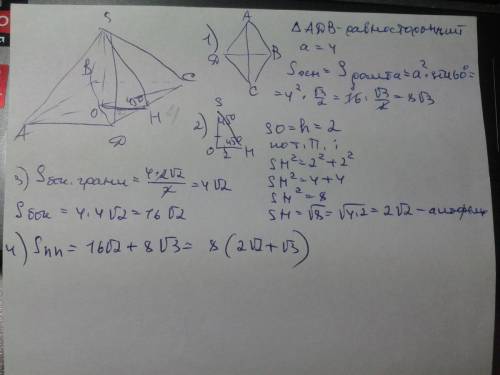 S
B
C
O
45°
H
4
A
D
1)
A
D
B
C
△ADB-равносторонний
a = 4
Sосн = Sромба = a²·sin60° =
= 4²·√3/2 = 16·√3/2 = 8√3
2)
S
45°
45°
O 2 H
SO = h = 2
по т. П.:
SH² = 2² + 2²
SH² = 4 + 4
SH² = 8
SH = √8 = √4·2 = 2√2 - апофема
3) Sбок. грани = 4·2√2/2 = 4√2
Sбок = 4·4√2 = 16√2
4) Sпп = 16√2 + 8√3 = 8(2√2 + √3)